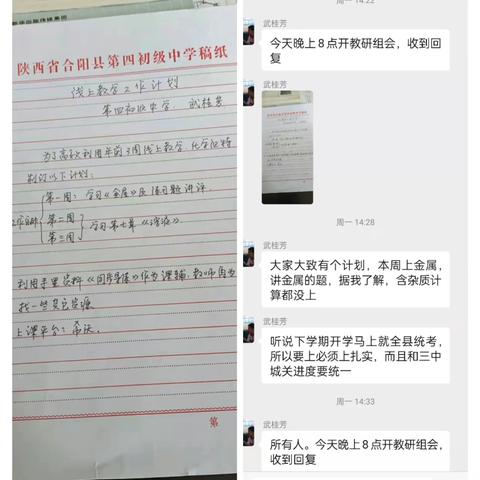 陕西省合阳县第四初级中学稿纸
线上教学工作计划
第四初级中学 武桂芳
为了高效利用年前3周线上教学,化学组特
制订以下计划:
第一周: 学习《金属》及练习题讲评
第二周
第三周
学习第七章《溶液》
利用手里资料《同步导练》作为课辅,教师自为
找一些其它资源
上课平台:希沃
第
周一 14:22
武桂芳
今天晚上8点开教研组会,收到
回复
武桂芳
周一 14:28
武桂芳
大家大致有个计划,本周上金属,
讲金属的题,据我了解,含杂质计
算都没上
武桂芳
听说下学期开学马上就全县统考,
所以要上必须上扎实,而且和三中
城关进度要统一
周一 14:33
武桂芳
所有人。今天晚上8点开教研组会,
收到回复